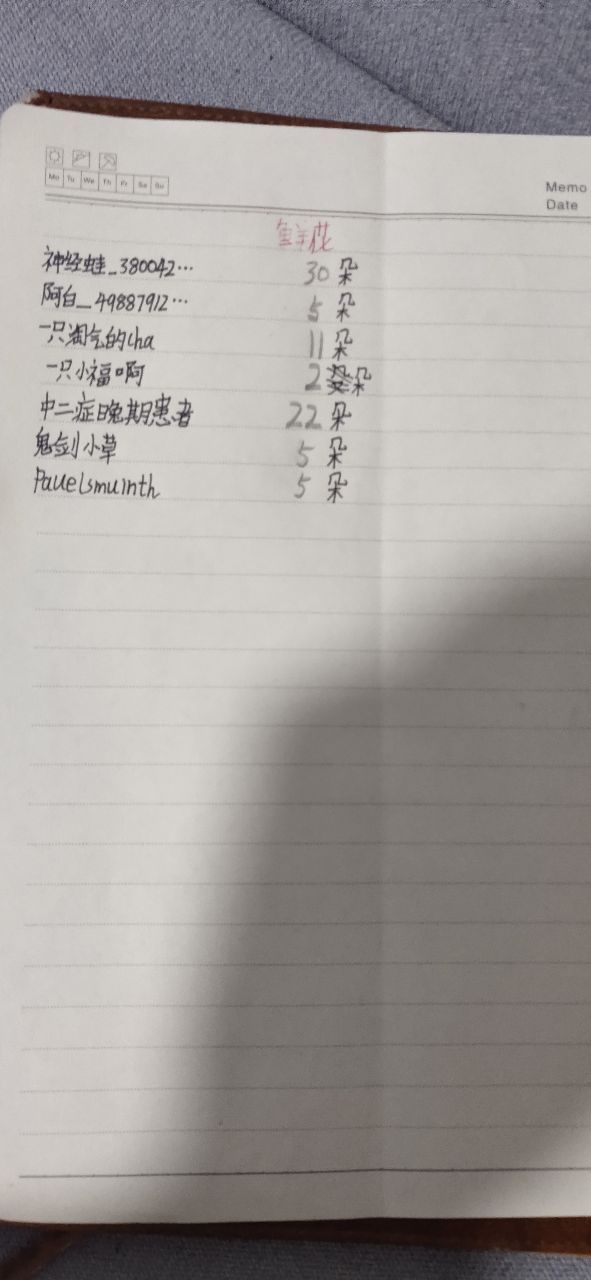 Mo Tu We Th Fr Sa Su
Memo
Date
鲜花
神经蛙_380042… 30 朵
阿白_49887912… 5 朵
一只淘气的cha 11 朵
一只小福啊 2 朵
中二症晚期患者 22 朵
鬼剑小草 5 朵
Pauelsmuinth 5 朵